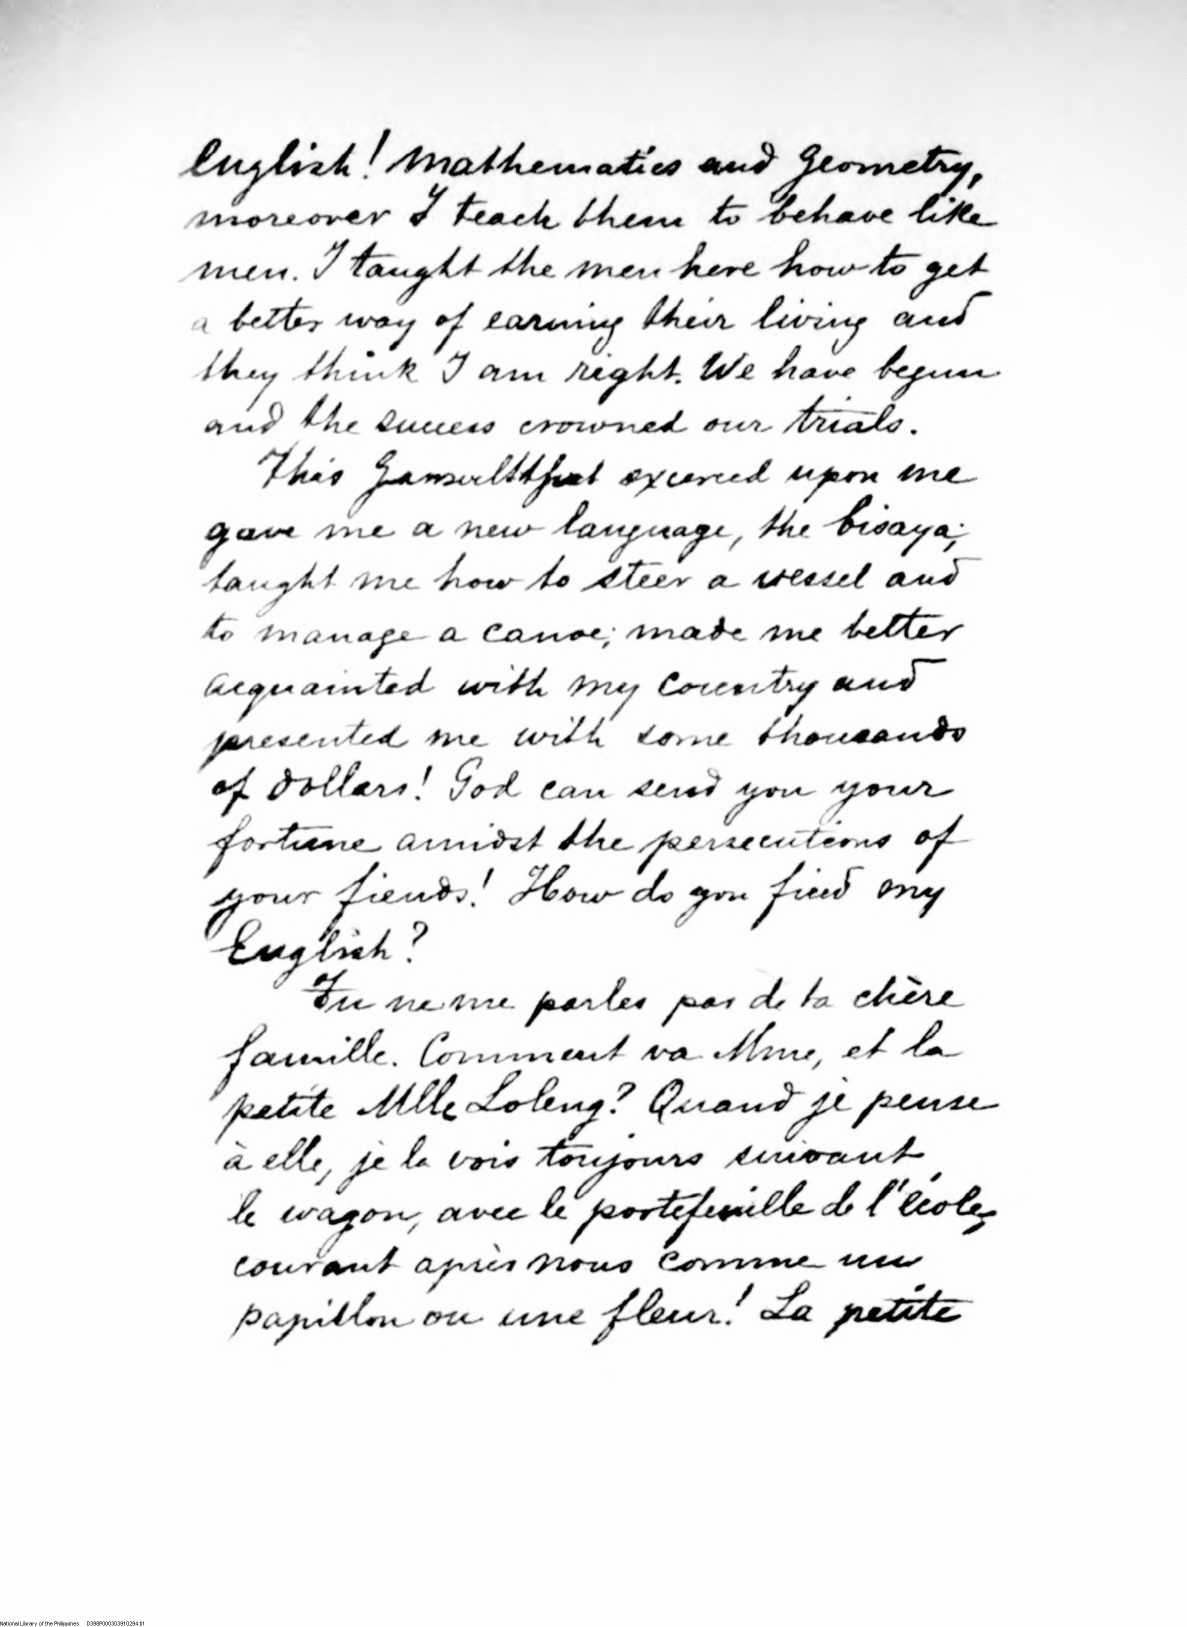 English! Mathematics and Geometry,
moreover I teach them to behave like
men. I taught the men here how to get
a better way of earning their living and
they think I am right. We have begun
and the success crowned our trials.
This exerced upon me
gave me a new language, the bisaya;
taught me how to steer a vessel and
to manage a canoe; made me better
acquainted with my country and
presented me with some thousands
of dollars! God can send you your
fortune amidst the persecutions of
your fiends! How do you find my
English?
Tu ne me parles pas de ta chère
famille. Comment va Mme, et la
petite Mlle Loleng? Quand je pense
à elle, je la vois toujours suivant
le wagon, avec le portefeuille de l'école,
courant après nous comme un
papillon ou une fleur! La petite
National Library of the Philippines